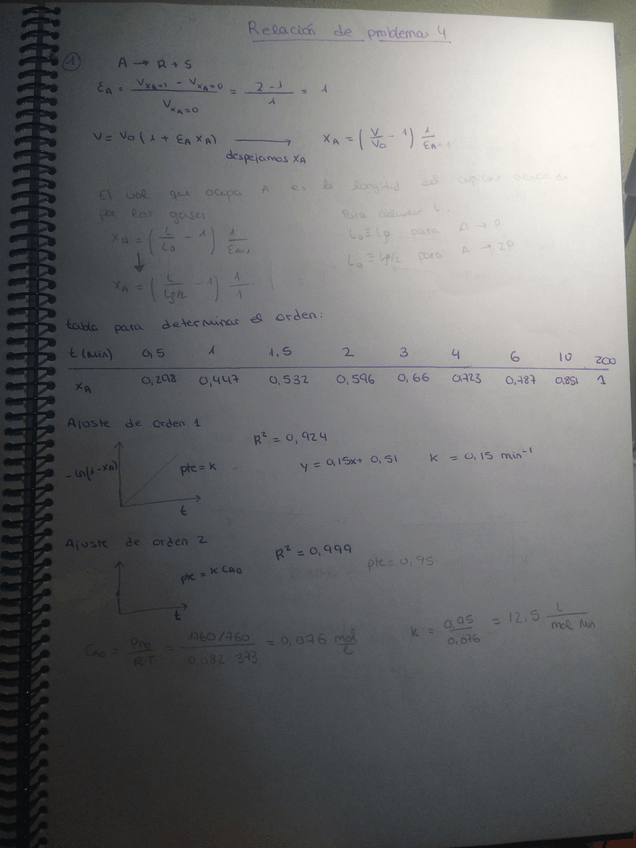 Relación de problemas 4
1 A → R + S
εA = (V_XA=1 - V_XA=0) / V_XA=0 = (2-1)/1 = 1
V = V0 (1 + εA XA) → despejamos XA XA = (V/V0 - 1) 1/εA
El vol que ocupa A es la longitud del capilar
por los gases Para calcular L.
XA = (L/L0 - 1) 1/ L0 ≡ Lp para A → P
↓ L0 ≡ Lp/2 para A → 2P
XA = (L/(Lp/2) - 1) 1/1
tabla para determinar el orden:
t (min) 0,5 1 1,5 2 3 4 6 10 200
XA 0,298 0,447 0,532 0,596 0,66 0,723 0,787 0,851 1
Ajuste de orden 1
R² = 0,924
-ln(1-XA) pte = k y = 0,15x + 0,51 k = 0,15 min⁻¹
t
Ajuste de orden 2
R² = 0,999
pte = k CA0 pte = 0,95
t
CA0 = /RT = 1760/760 / 0,082·373 = 0,076 mol/L k = 0,95/0,076 = 12,5 L/mol min